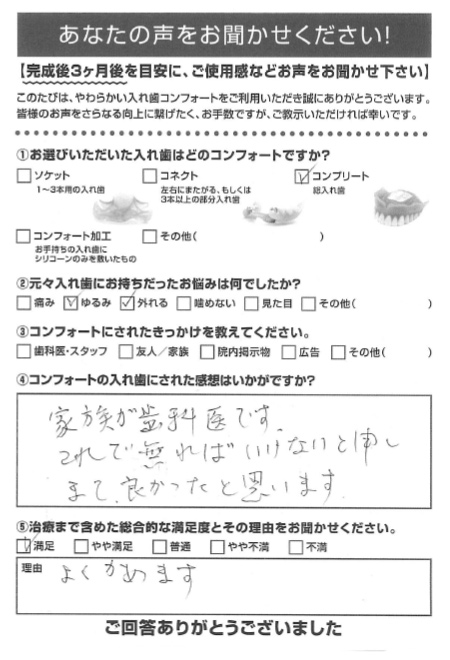 あなたの声をお聞かせください!
【完成後3ヶ月後を目安に、ご使用感などお声をお聞かせ下さい】
このたびは、やわらかい入れ歯コンフォートをご利用いただき誠にありがとうございます。
皆様のお声をさらなる向上に繋げたく、お手数ですが、ご教示いただければ幸いです。
①お選びいただいた入れ歯はどのコンフォートですか?
□ソケット □コネクト ☑コンプリート
1〜3本用の入れ歯 左右にまたがる、もしくは 総入れ歯
3本以上の部分入れ歯
□コンフォート加工 □その他( )
お手持ちの入れ歯に
シリコーンのみを敷いたもの
②元々入れ歯にお持ちだったお悩みは何でしたか?
□痛み ☑ゆるみ ☑外れる □噛めない □見た目 □その他( )
③コンフォートにされたきっかけを教えてください。
□歯科医・スタッフ □友人/家族 □院内掲示物 □広告 □その他( )
④コンフォートの入れ歯にされた感想はいかがですか?
家族が歯科医です。
これで無ればいけないと申し
まて、良かったと思います
⑤治療まで含めた総合的な満足度とその理由をお聞かせください。
☑満足 □やや満足 □普通 □やや不満 □不満
理由 よくかめます
ご回答ありがとうございました